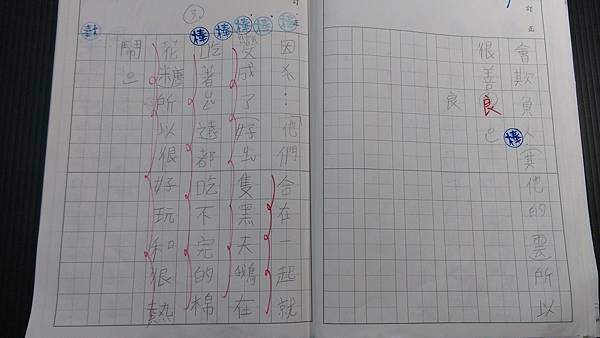 會欺負人(其他的雲)所以
很善良ㄜ
良
訂正
3.
因為:他們合在一起就
變成了好幾隻黑天鵝在
吃著永遠都吃不完的棉
花糖所以很好玩和很熱
鬧。
棒棒棒棒
訂正